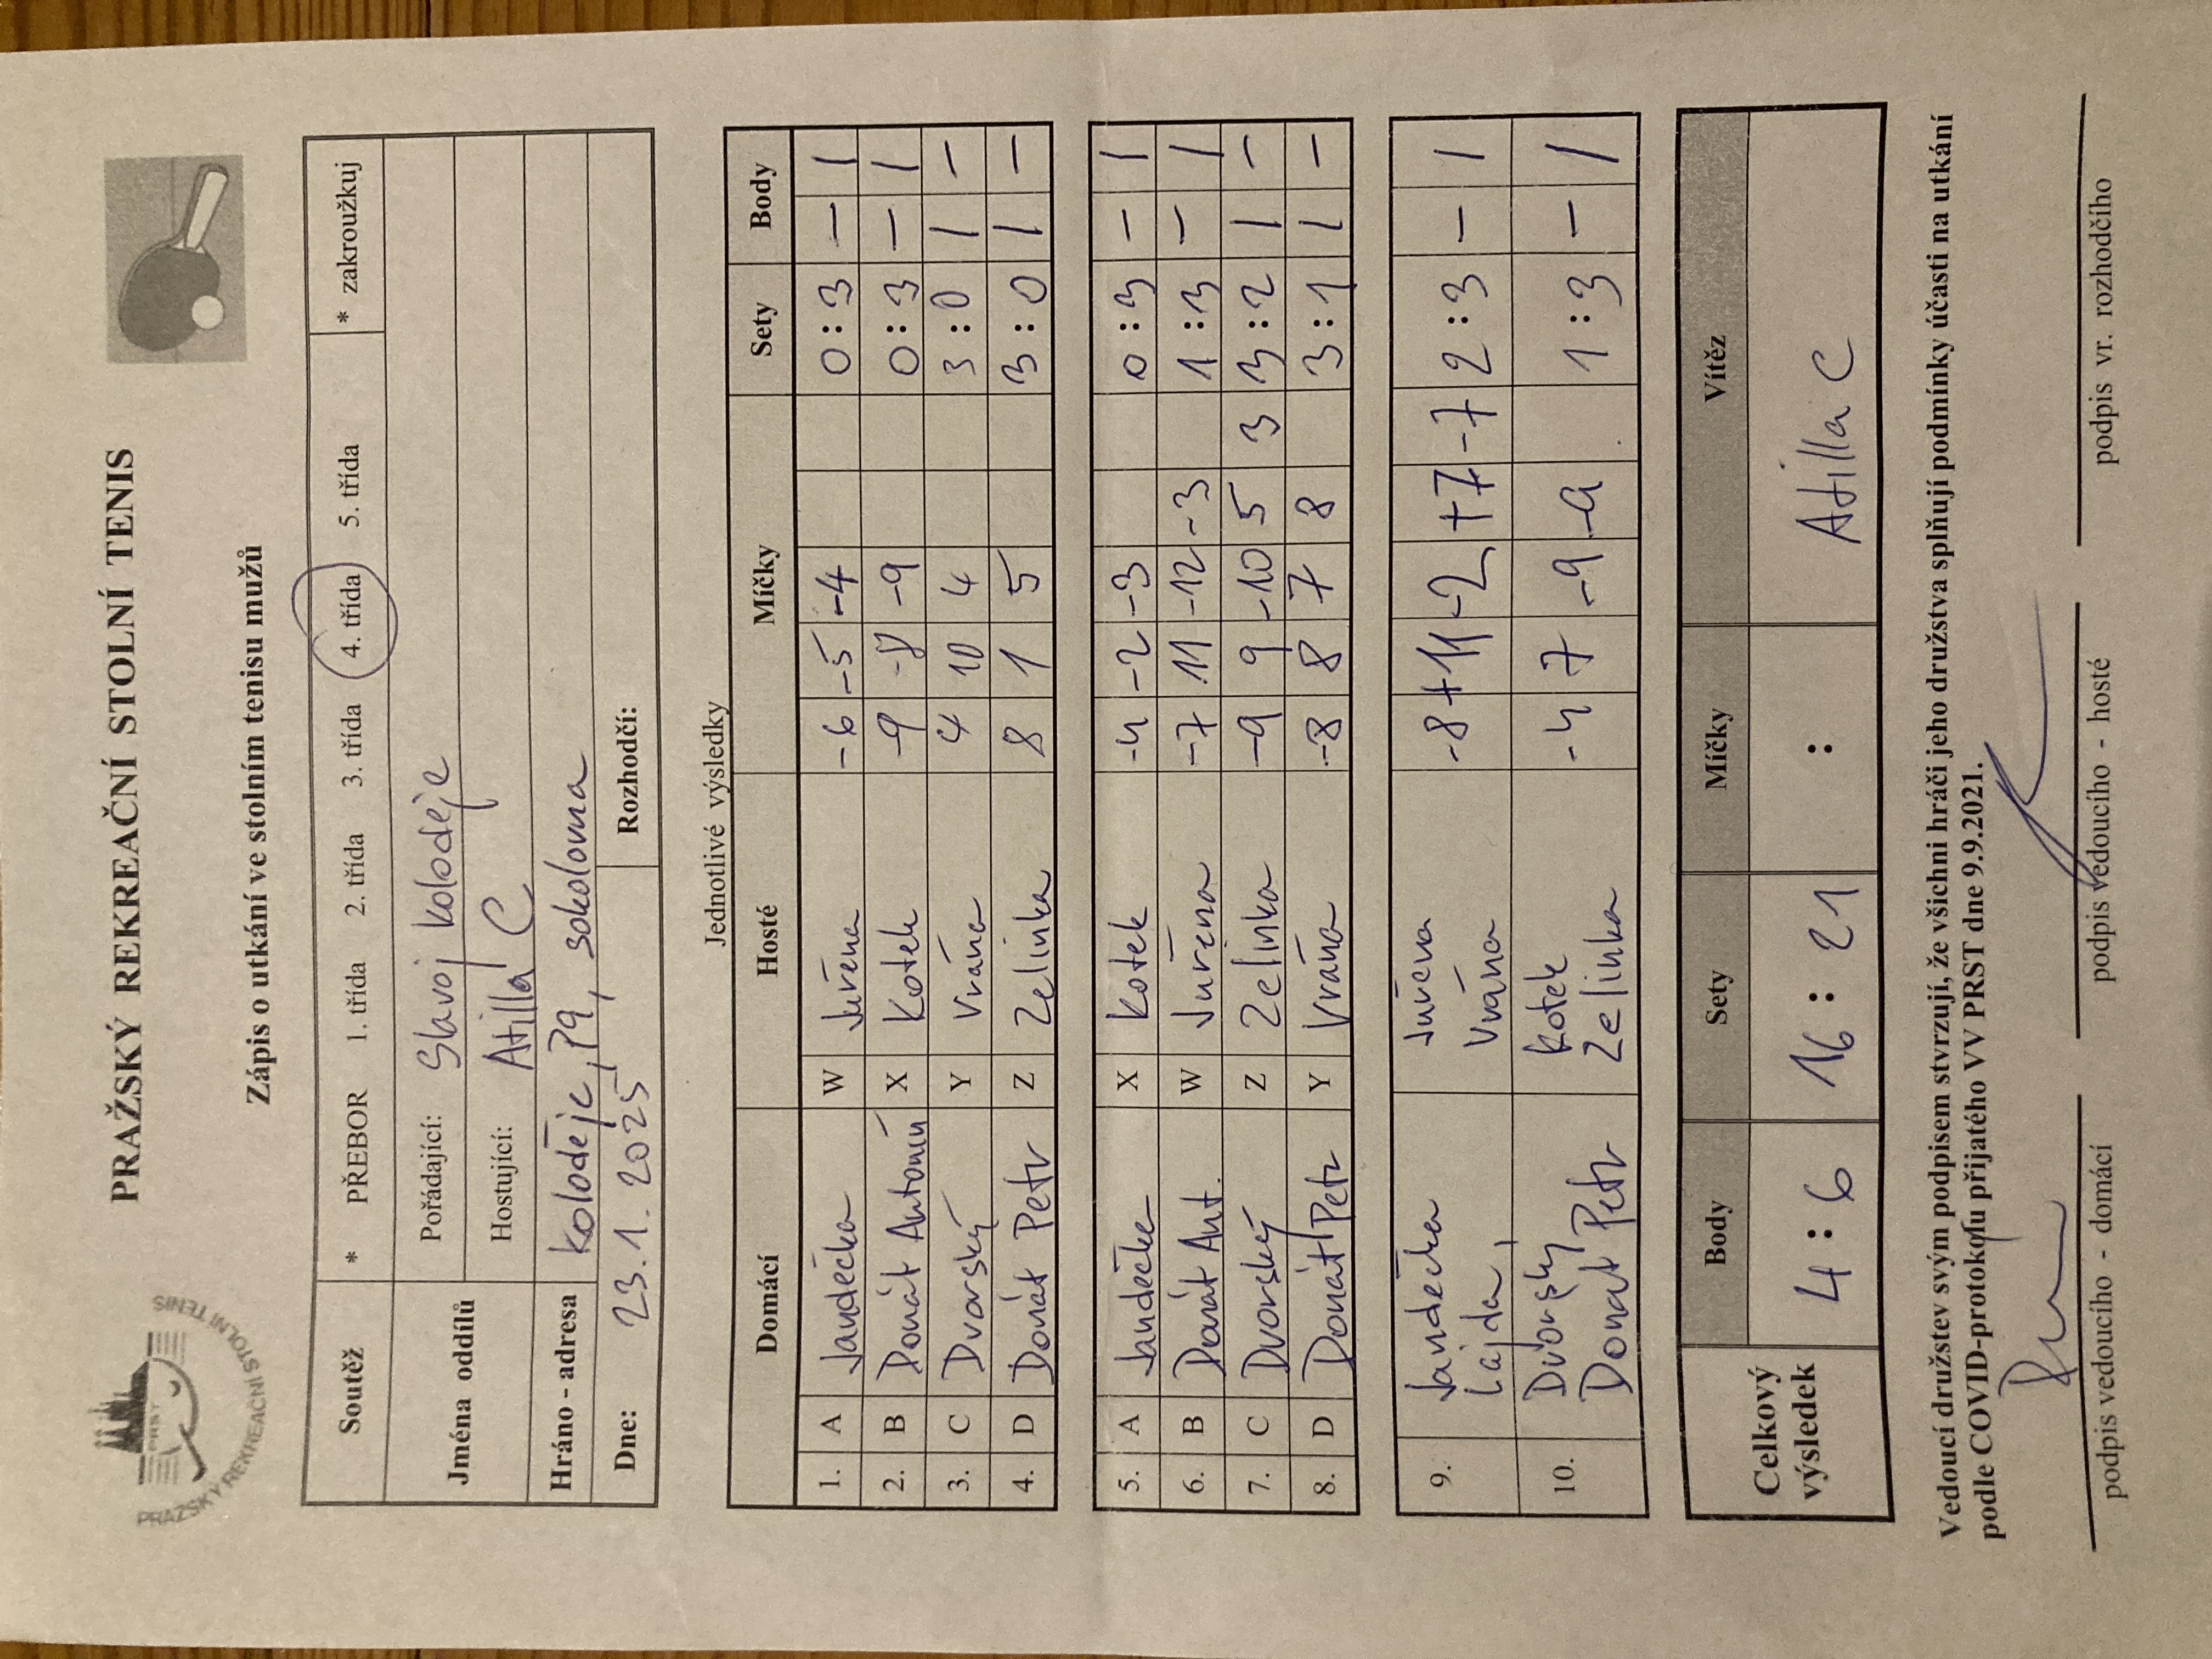 PRAŽSKÝ REKREAČNÍ STOLNÍ TENIS
PRAŽSKÝ REKREAČNÍ STOLNÍ TENIS
PRST
Zápis o utkání ve stolním tenisu mužů
Soutěž * PŘEBOR 1. třída 2. třída 3. třída 4. třída 5. třída * zakroužkuj
Jména oddílů Pořádající: Slavoj Koloděje
Hostující: Atilla C
Hráno - adresa Koloděje, P9, sokolovna
Dne: 23. 1. 2025 Rozhodčí:
Jednotlivé výsledky
Domácí Hosté Míčky Sety Body
1. A Jandečka W Juřena -6 -5 -4 0 : 3 – 1
2. B Donát Antonín X Kotek -9 -8 -9 0 : 3 – 1
3. C Dvorský Y Vrána 4 10 4 3 : 0 1 –
4. D Donát Petr Z Zelinka 8 1 5 3 : 0 1 –
5. A Jandečka X Kotek -4 -2 -3 0 : 3 – 1
6. B Donát Ant. W Juřena -7 11 -12 -3 1 : 3 – 1
7. C Dvorský Z Zelinka -9 9 -10 5 3 3 : 2 1 –
8. D Donát Petr Y Vrána -8 8 7 8 3 : 1 1 –
9. Jandečka Juřena -8 +11 -2 +7 -7 2 : 3 – 1
Lajda Vrána
10. Dvorský Kotek -4 7 -9 -9 1 : 3 – 1
Donát Petr Zelinka
Celkový výsledek Body Sety Míčky Vítěz
4 : 6 16 : 21 : Atilla C
Vedoucí družstev svým podpisem stvrzují, že všichni hráči jeho družstva splňují podmínky účasti na utkání
podle COVID-protokolu přijatého VV PRST dne 9.9.2021.
podpis vedoucího - domácí podpis vedoucího - hosté podpis vr. rozhodčího